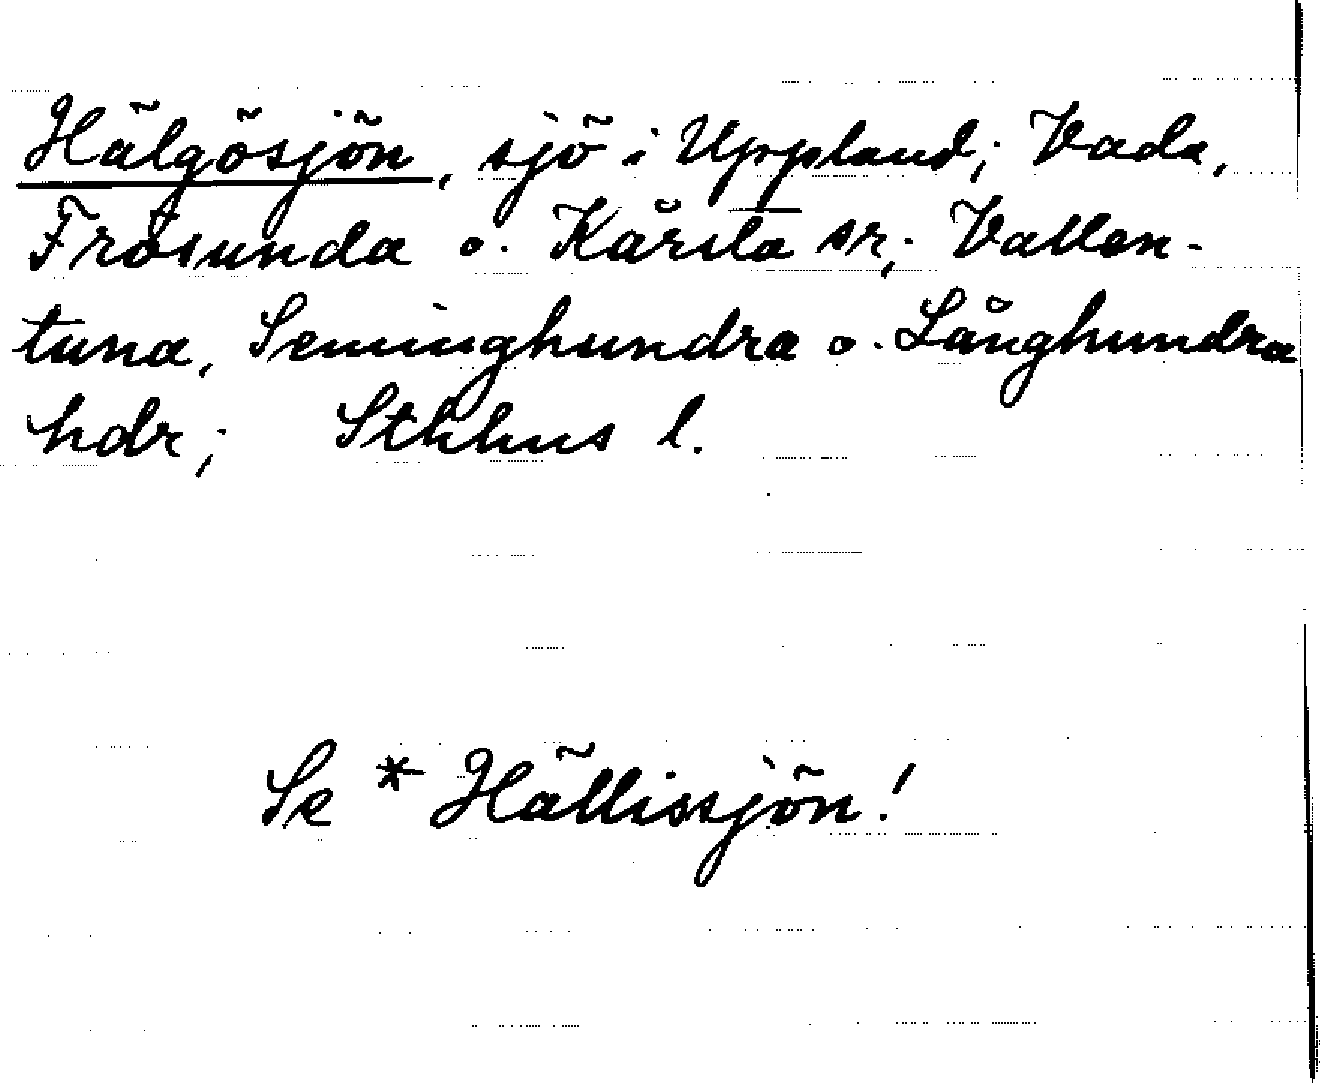 Hälgösjön, sjö i Uppland; Vada,
Frösunda o. Kårsta sr; Vallen-
tuna, Seminghundra o. Långhundra
hdr; Sthlms l.
Se * Hällissjön!